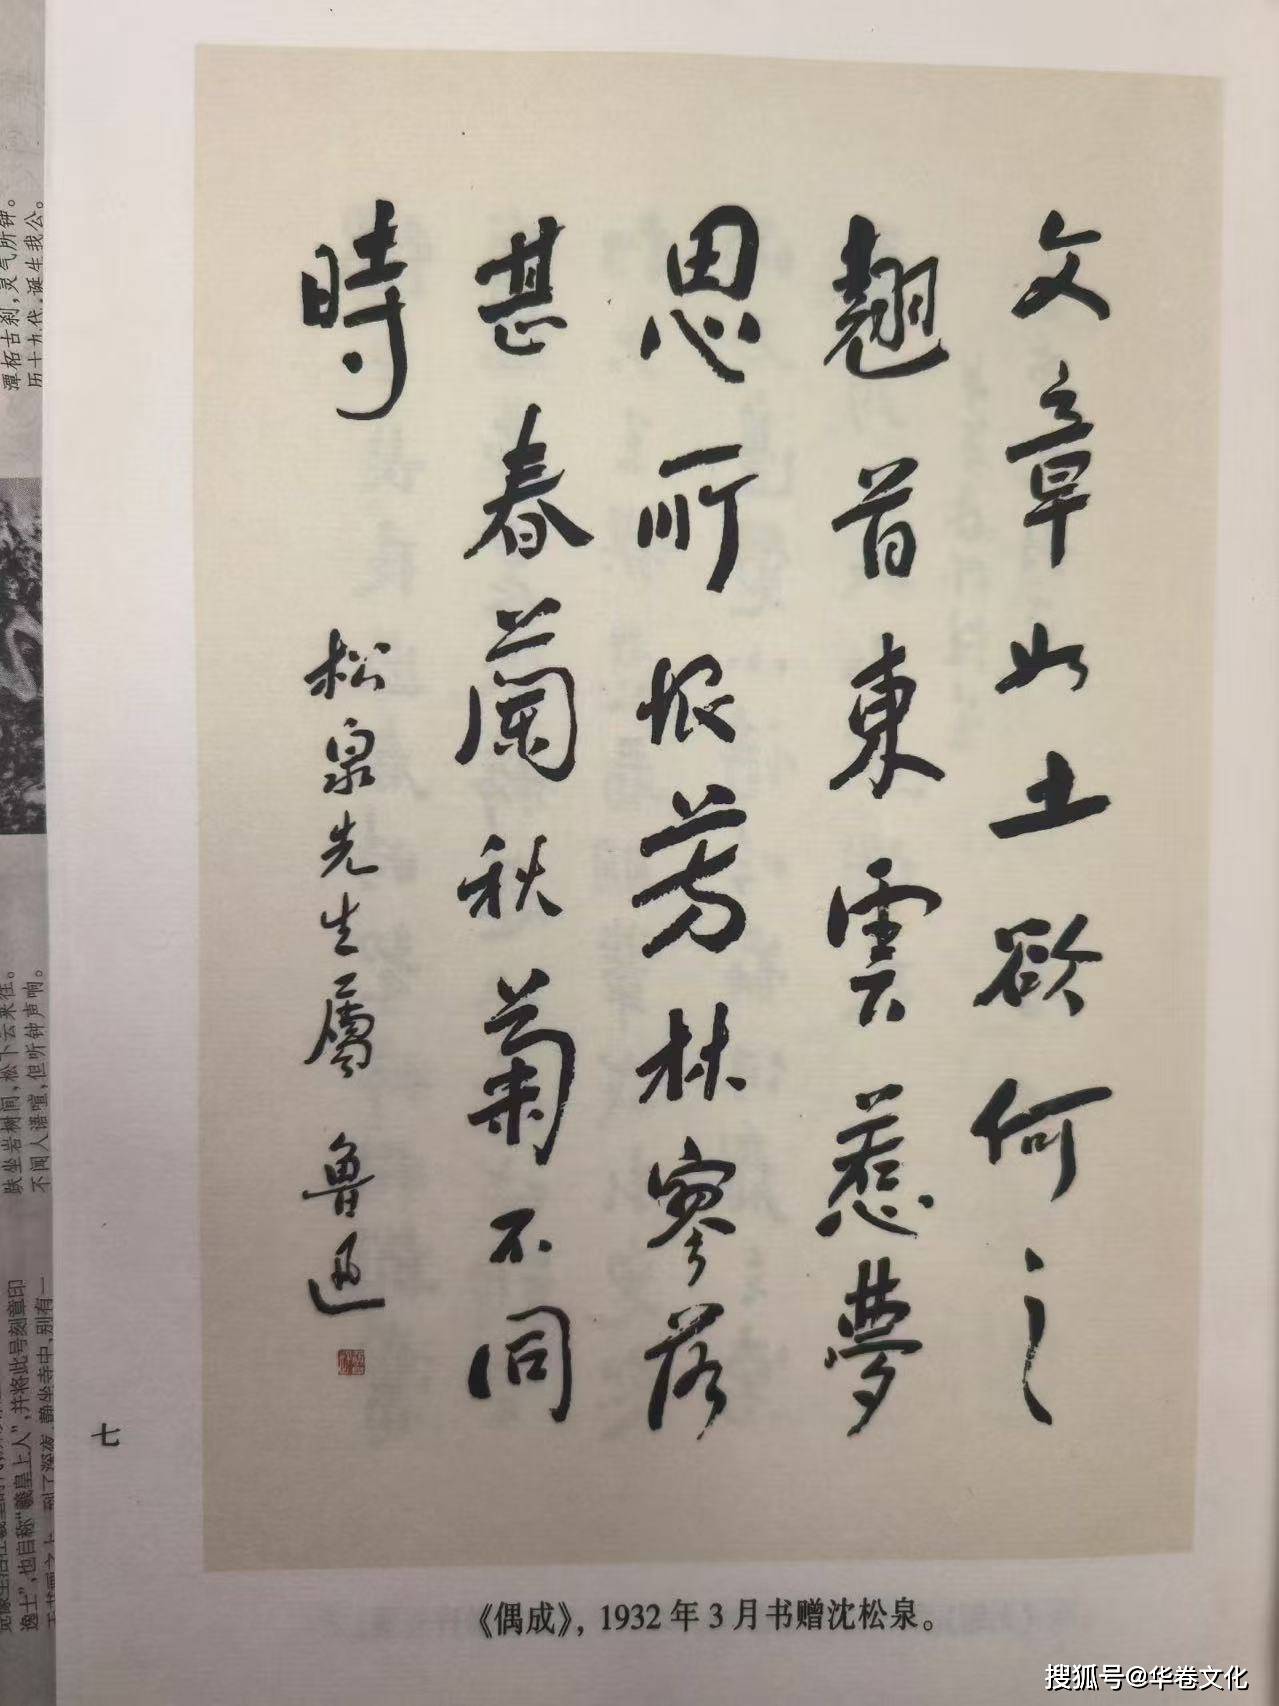 文章如土欲何之
翹首東雲惹夢
思所恨芳林寥落
甚春蘭秋菊不同
時
松泉先生屬 魯迅
《偶成》，1932年3月书赠沈松泉。
七
潭柘古刹，灵气所钟。
历十九代，诞生我公。
趺坐岩树间，松下云来往。
不闻人语喧，但听钟声响。
逸士”，也自称“羲皇上人”，并将此号刻章印
到了深夜，静坐寺中，别有一
搜狐号@华卷文化